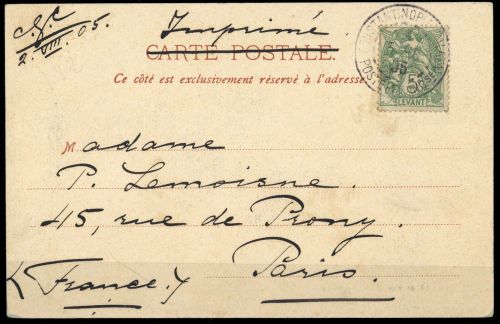 Imprimé.
2. VIII. 05.
CARTE POSTALE.
Ce côté est exclusivement réservé à l'adresse
CONSTANTINOPLE
05
5c
LEVANT
Madame
P. Lemoisne
45, rue de Prony.
Paris.
(France.)